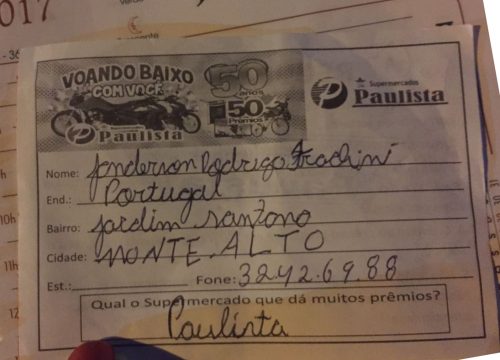 017
VOANDO BAIXO
COM VOCÊ
50
anos
50
Prêmios
Paulista
Supermercados
Paulista
Nome: Janderson Rodrigo Frachini
End.: Portugal
Bairro: Jardim Santono
Cidade: MONTE.ALTO
Est.: Fone: 3242.69.88
Qual o Supermercado que dá muitos prêmios?
Paulista
10h
11h
12